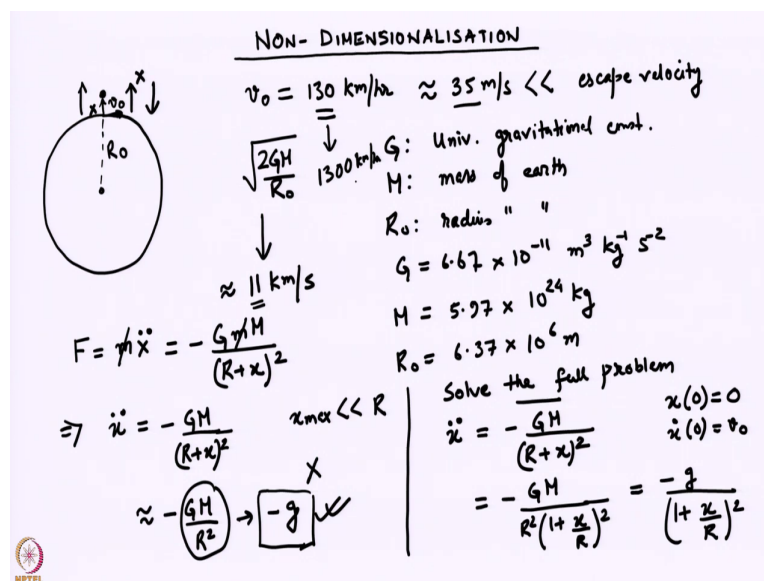 NON-DIMENSIONALISATION
x
x v₀
R₀
v₀ = 130 km/hr ≈ 35 m/s << escape velocity
√(2GM/R₀) 1300 km/h
G: Univ. gravitational const.
M: mass of earth
R₀: radius " "
≈ 11 km/s
G = 6.67 × 10⁻¹¹ m³ kg⁻¹ s⁻²
M = 5.97 × 10²⁴ kg
R₀ = 6.37 × 10⁶ m
F = mẍ = - GmM/(R+x)²
⇒ ẍ = - GM/(R+x)² xmax << R
≈ - GM/R² → -g X ✓
Solve the full problem
ẍ = - GM/(R+x)² x(0) = 0
ẋ(0) = v₀
= - GM/R²(1 + x/R)² = -g/(1 + x/R)²
NPTEL